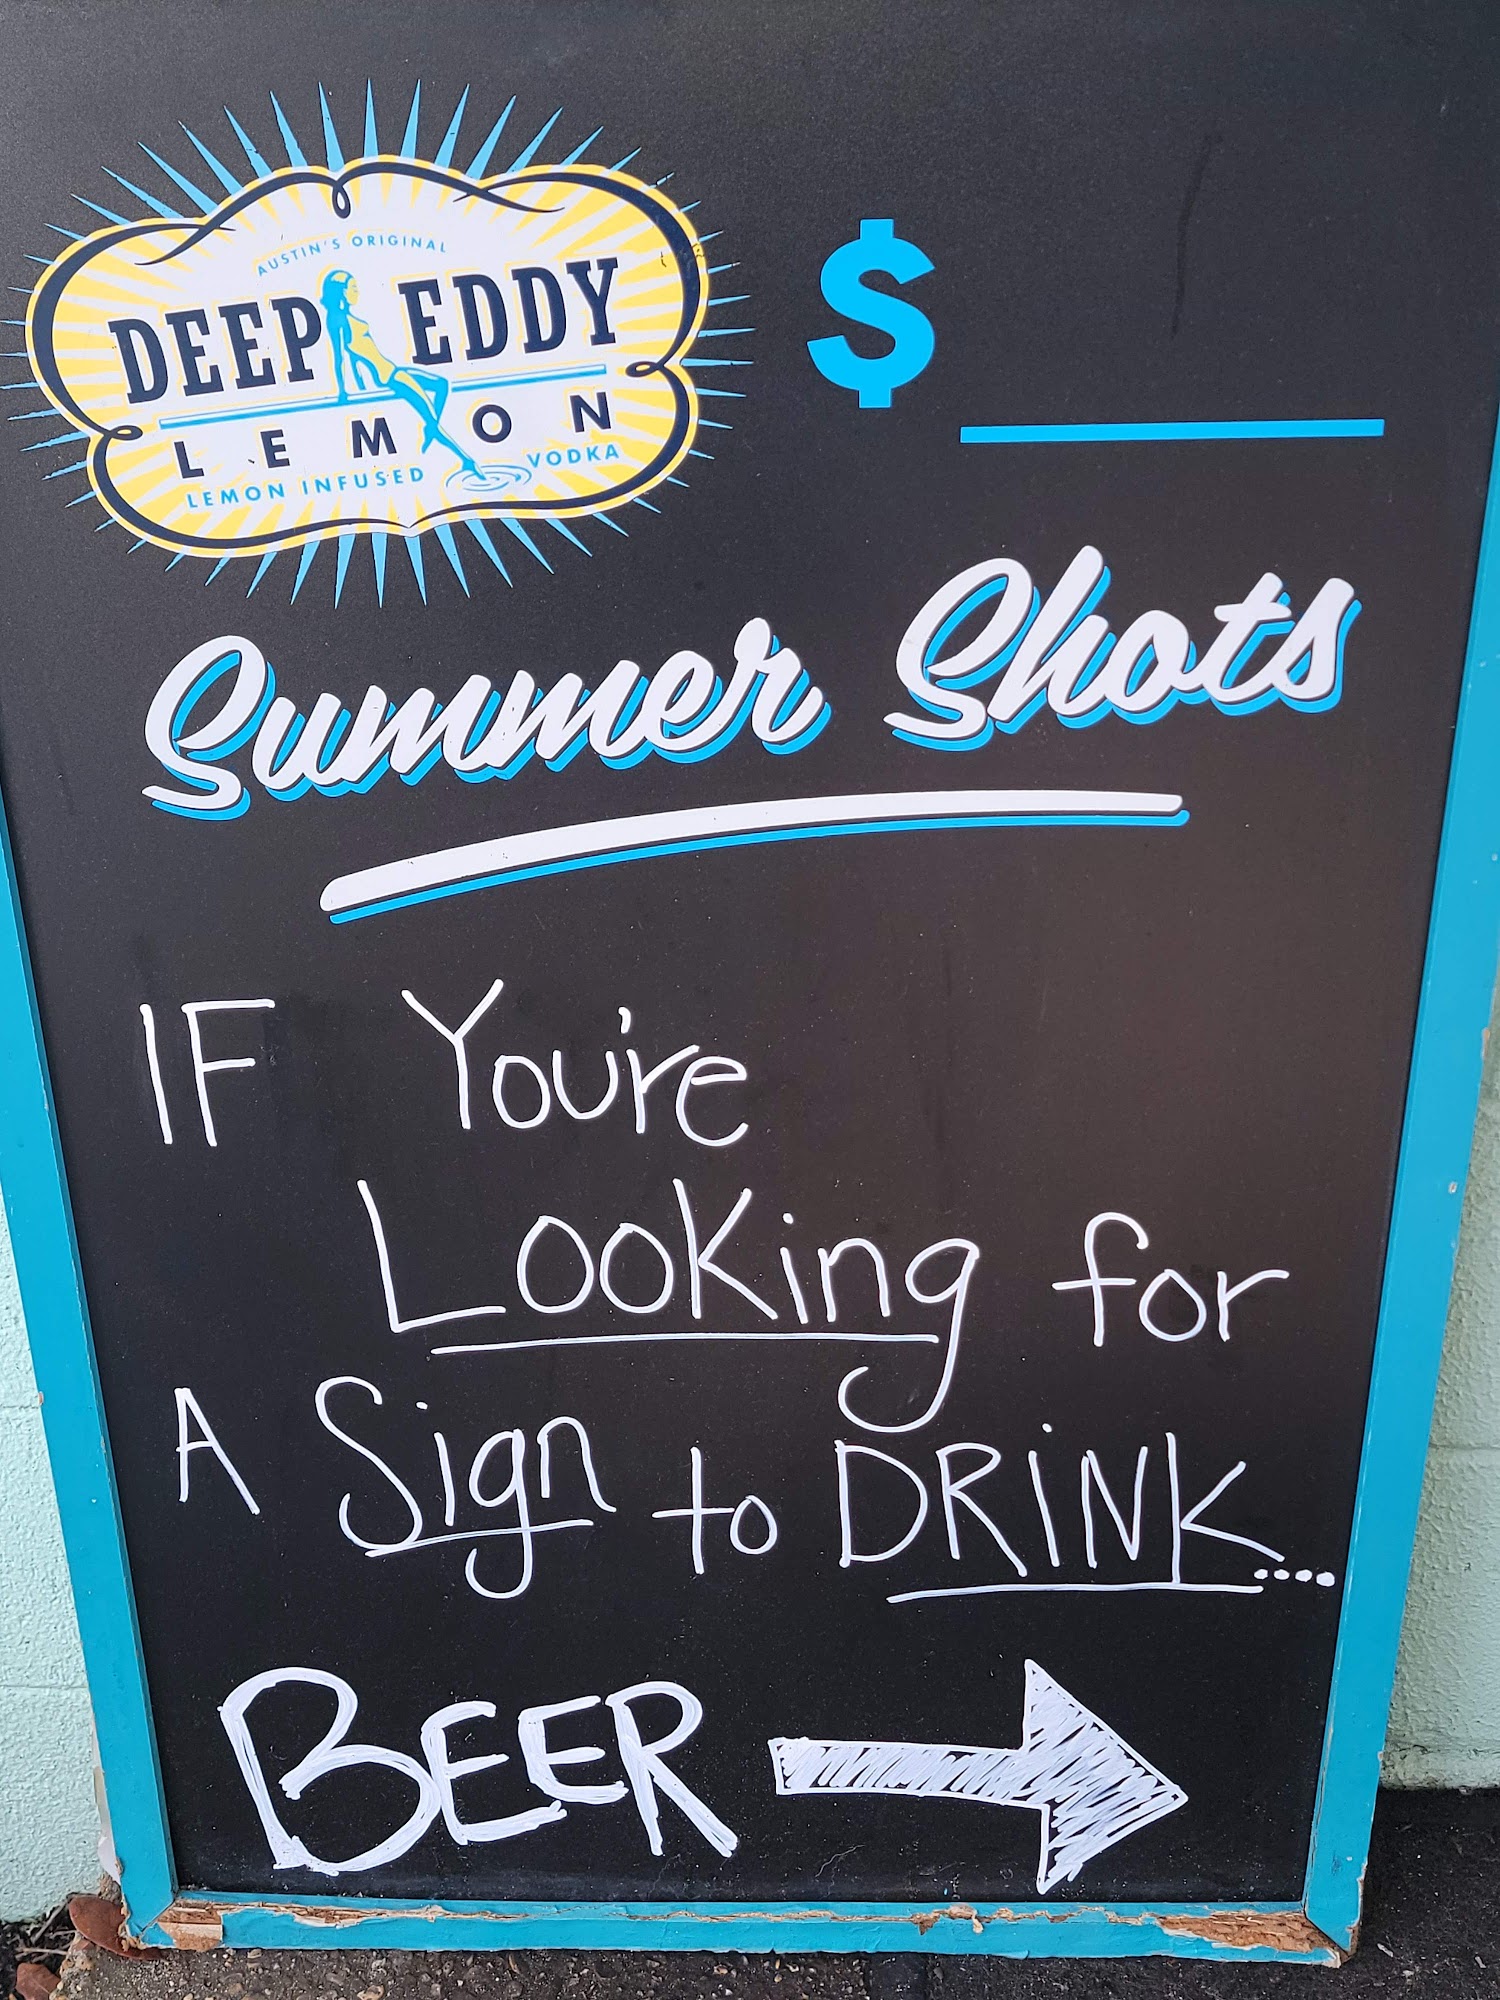 AUSTIN'S ORIGINAL
DEEP EDDY
LEMON
LEMON INFUSED VODKA
$
Summer Shots
IF You're
Looking for
A Sign to DRiNK....
BEER